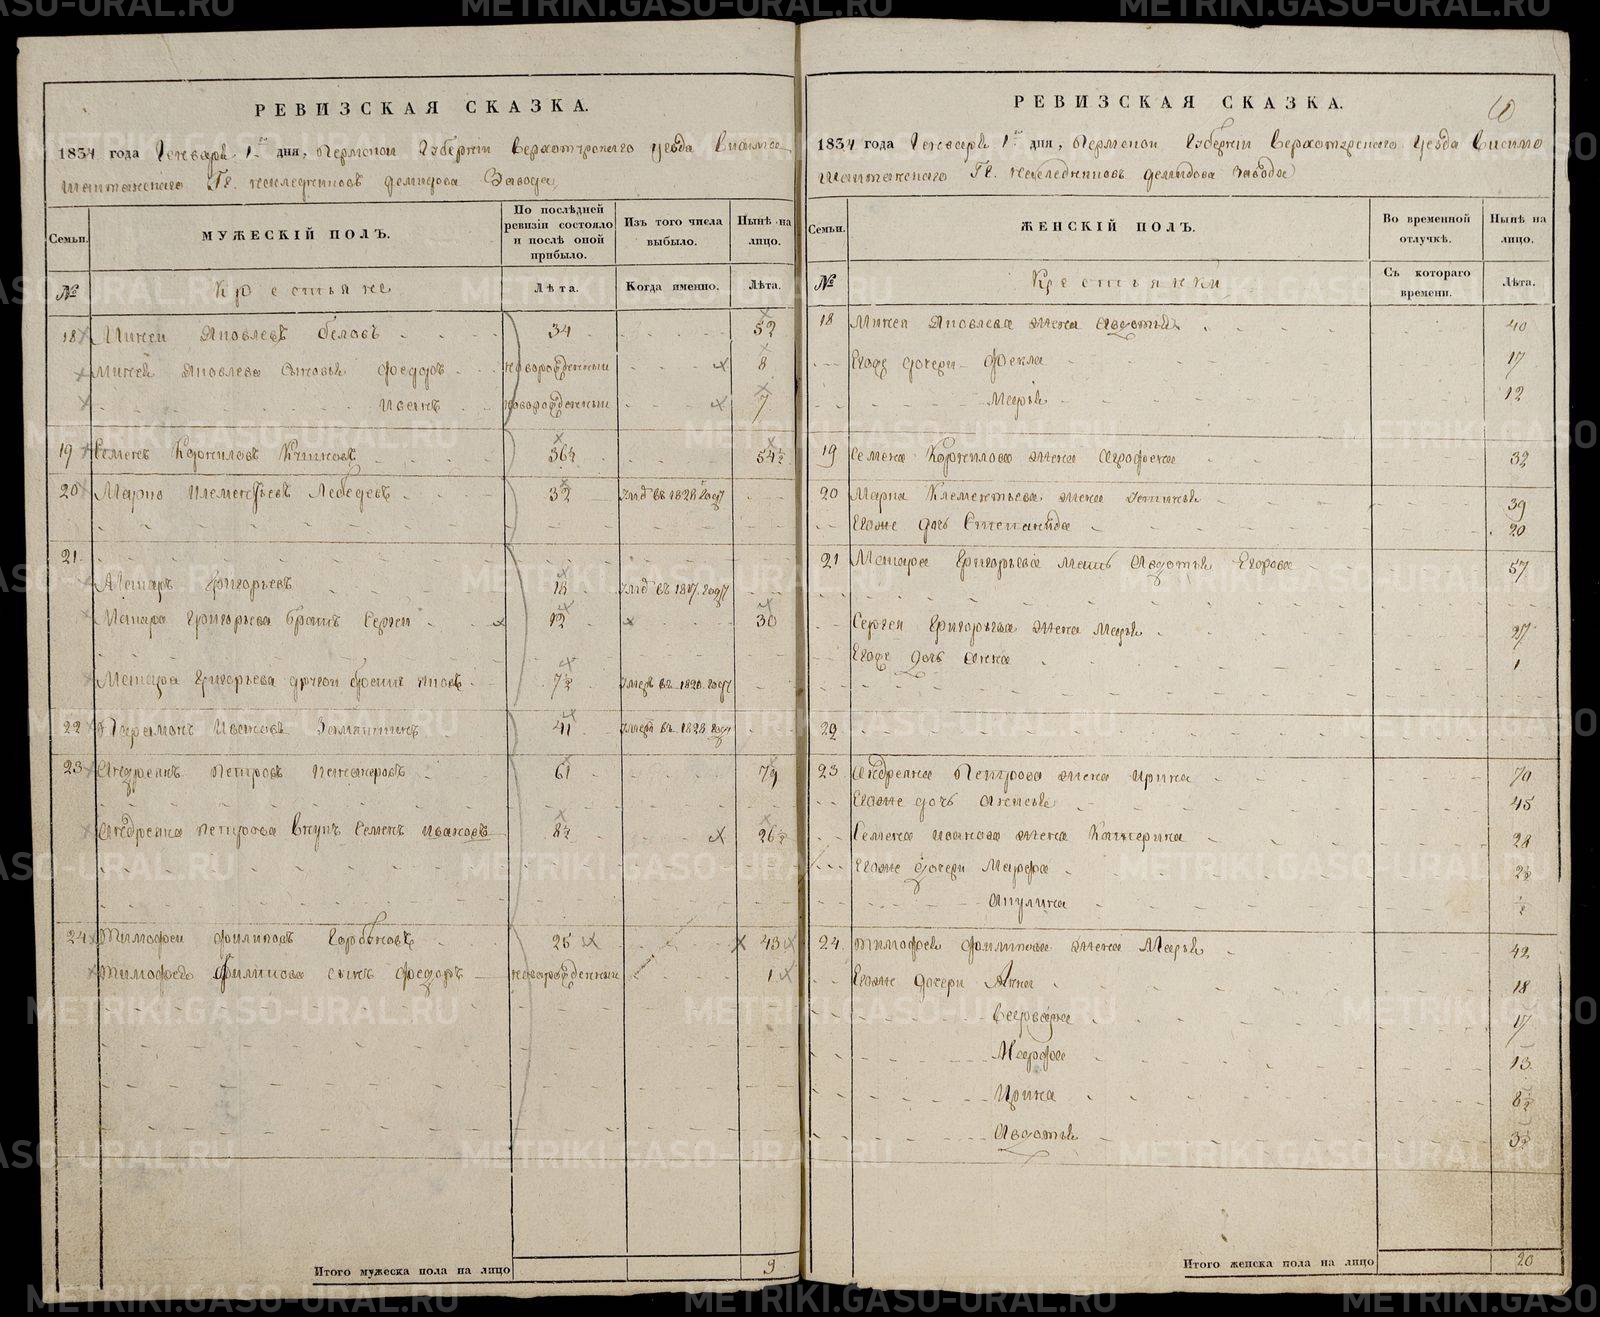 РЕВИЗСКАЯ СКАЗКА.
1834 года Генваря 1го дня, Пермской Губернии Верхотурского уезда Висимо
шайтанского Гг. наследников Демидова Завода
Семьи.
МУЖЕСКІЙ ПОЛЪ.
По послѣдней ревизіи состояло и послѣ оной прибыло.
Изъ того числа выбыло.
Нынѣ на лицо.
№
Крестьяне
Лѣта.
Когда именно.
Лѣта.
18 Миней Яковлевъ Беловъ 34 52
Минея Яковлева сыновья Федоръ новорожденный 8
Иванъ новорожденный 7
19 Семенъ Корниловъ 36½ 54½
20 Марко Клементьевъ Лебедевъ 32 1828 году
21
Макаръ Григорьевъ 18 1817 году
Макара Григорьева братъ Сергей 12 30
Макара Григорьева другой братъ Яковъ 7½ умеръ въ 1820 году
22 Парамонъ Ивановъ Замятинъ 41 умеръ въ 1828 году
23 Андреянъ Петровъ 61 79
Андреяна Петрова внукъ Семенъ Ивановъ 8½ 26½
24 Тимофей Филиповъ Горбуновъ 25 43
Тимофея Филипова сынъ Федоръ новорожденный 1
Итого мужеска пола на лицо 9
РЕВИЗСКАЯ СКАЗКА.
1834 года Генваря 1го дня, Пермской Губернии Верхотурского уезда Висимо
шайтанского Гг. наследниковъ Демидова Завода
Семьи.
ЖЕНСКІЙ ПОЛЪ.
Во временной отлучкѣ.
Нынѣ на лицо.
№
Крестьянки
Съ котораго времени.
Лѣта.
18 Минея Яковлева жена Авдотья 40
Егожъ дочери Фекла 17
Марья 12
19 Семена Корнилова жена Агрофена 32
20 Марка Клементьева жена Устинья 39
Егоже дочь Степанида 20
21 Макара Григорьева мать Авдотья Егорова 57
Сергея Григорьева жена Марья 27
Егожъ дочь Анна 1
22
23 Андреяна Петрова жена Ирина 70
Егоже дочь Аксинья 45
Семена Иванова жена Катерина 28
Егоже дочери Марфа 2½
Акулина ½
24 Тимофея Филипова жена Марья 42
Егоже дочери Анна 18
Варвара 17
Марфа 13
Ирина 8½
Авдотья 3½
Итого женска пола на лицо 20
METRIKI.GASO-URAL.RU